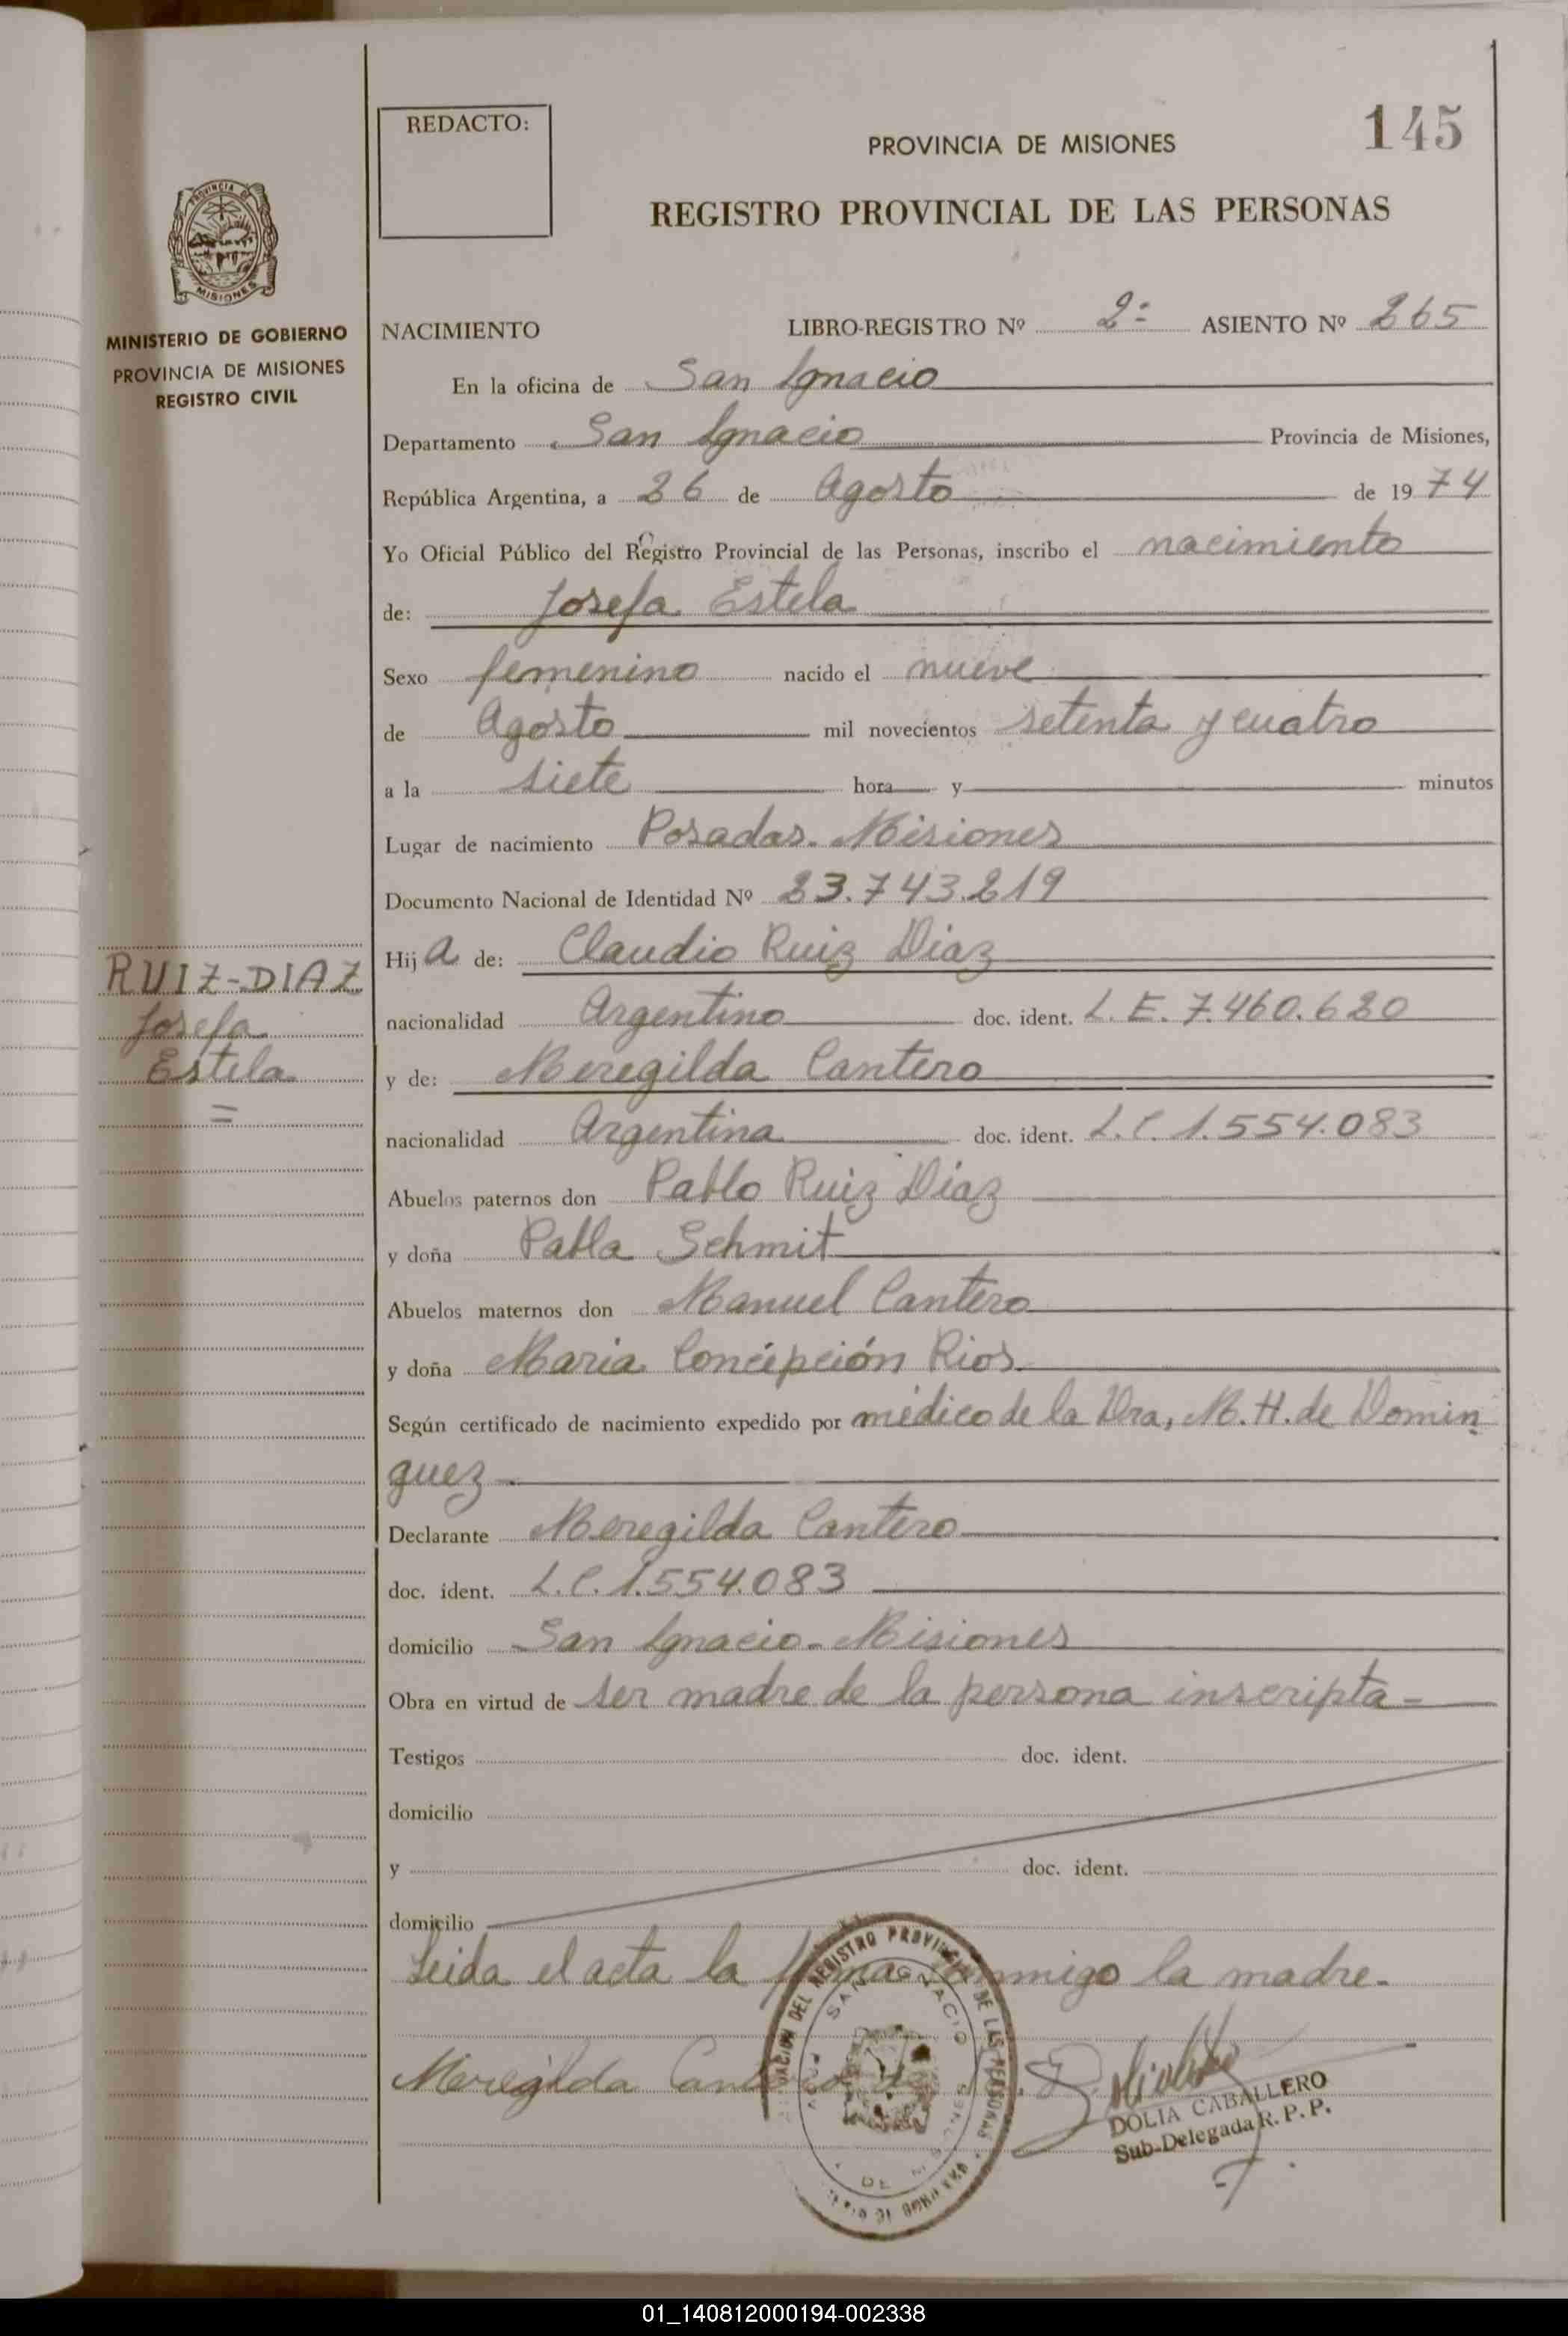 REDACTO:
145
PROVINCIA DE MISIONES
REGISTRO PROVINCIAL DE LAS PERSONAS
PROVINCIA DE
MISIONES
MINISTERIO DE GOBIERNO
PROVINCIA DE MISIONES
REGISTRO CIVIL
NACIMIENTO LIBRO-REGISTRO Nº 2º ASIENTO Nº 265
En la oficina de San Ignacio
Departamento San Ignacio Provincia de Misiones,
República Argentina, a 26 de Agosto de 1974
Yo Oficial Público del Registro Provincial de las Personas, inscribo el nacimiento
de: Josefa Estela
Sexo femenino nacido el nueve
de Agosto mil novecientos setenta y cuatro
a la siete hora y minutos
Lugar de nacimiento Posadas. Misiones
Documento Nacional de Identidad Nº 23.743.219
Hija de: Claudio Ruiz Diaz
RUIZ-DIAZ
Josefa
Estela
=
nacionalidad Argentino doc. ident. L.E. 7.460.620
y de: Meregilda Cantero
nacionalidad Argentina doc. ident. L.C. 1.554.083
Abuelos paternos don Pablo Ruiz Diaz
y doña Pabla Schmit
Abuelos maternos don Manuel Cantero
y doña Maria Concepción Rios
Según certificado de nacimiento expedido por médico de la Dra, M.H. de Domin
guez
Declarante Meregilda Cantero
doc. ident. L.C. 1.554.083
domicilio San Ignacio-Misiones
Obra en virtud de ser madre de la persona inscripta-
Testigos doc. ident.
domicilio
y doc. ident.
domicilio
Leida el acta la firma conmigo la madre.
Meregilda Cantero de
DEL REGISTRO PROVINCIAL DE LAS PERSONAS
SAN IGNACIO
DOLIA CABALLERO
Sub-Delegada R. P. P.
01_140812000194-002338